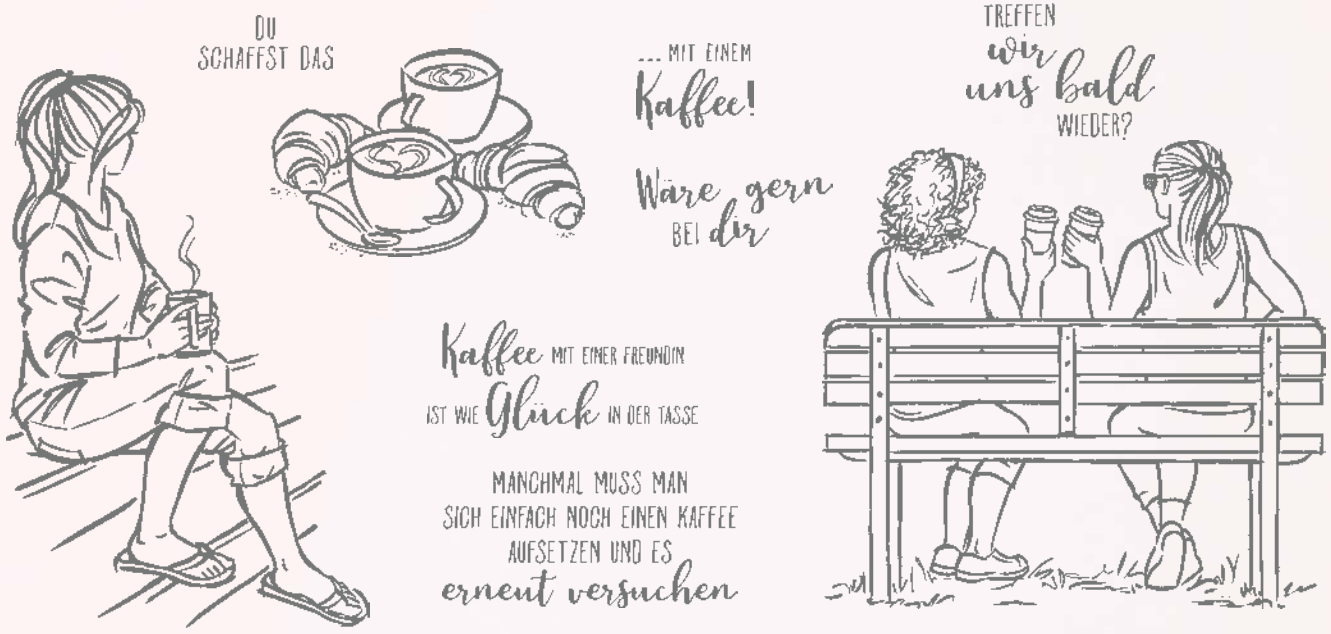 DU
SCHAFFST DAS
... MIT EINEM
Kaffee!
Wäre gern
BEI dir
TREFFEN
wir
uns bald
WIEDER?
Kaffee MIT EINER FREUNDIN
IST WIE Glück IN DER TASSE
MANCHMAL MUSS MAN
SICH EINFACH NOCH EINEN KAFFEE
AUFSETZEN UND ES
erneut versuchen